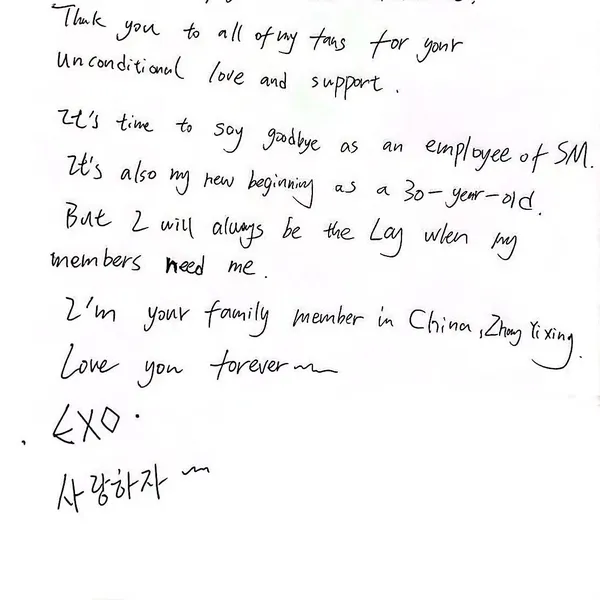 Thank you to all of my fans for your
unconditional love and support.
It's time to say goodbye as an employee of SM.
It's also my new beginning as a 30-year-old.
But I will always be the Lay when my
members need me.
I'm your family member in China, Zhang Yixing.
Love you forever~
EXO.
사랑하자~